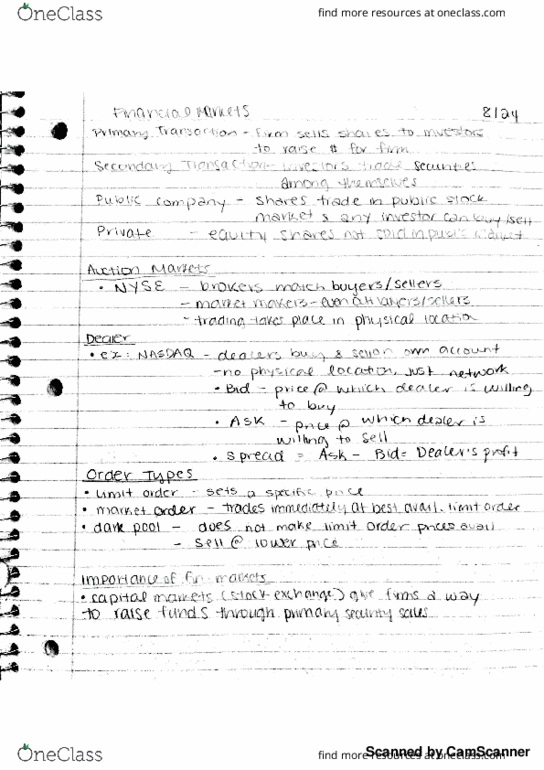 OneClass
find more resources at oneclass.com
Financial Markets 8/24
Primary Transaction - firm sells shares to investors
to raise $ for firm
Secondary Transaction - investors trade securities
among themselves
Public company - shares trade in public stock
market & any investor can buy/sell
Private - equity shares not sold in public market
Auction Markets
• NYSE - brokers match buyers/sellers
- market makers - buyers/sellers
- trading takes place in physical location
Dealer
• ex: NASDAQ - dealers buy & sell on own account
- no physical location, just network
• Bid - price @ which dealer is willing
to buy
• Ask - price @ which dealer is
willing to sell
• spread = Ask - Bid = Dealer's profit
Order Types
• limit order - sets a specific price
• market order - trades immediately at best avail. limit order
• dark pool - does not make limit order prices avail
- sell @ lower price
Importance of fin markets
• capital markets (stock exchange) give firms a way
to raise funds through primary security sales
OneClass
find more resources at oneclass.com
Scanned by CamScanner